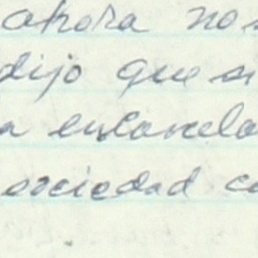 ahora nos
dijo que si
a encarcela
sociedad co